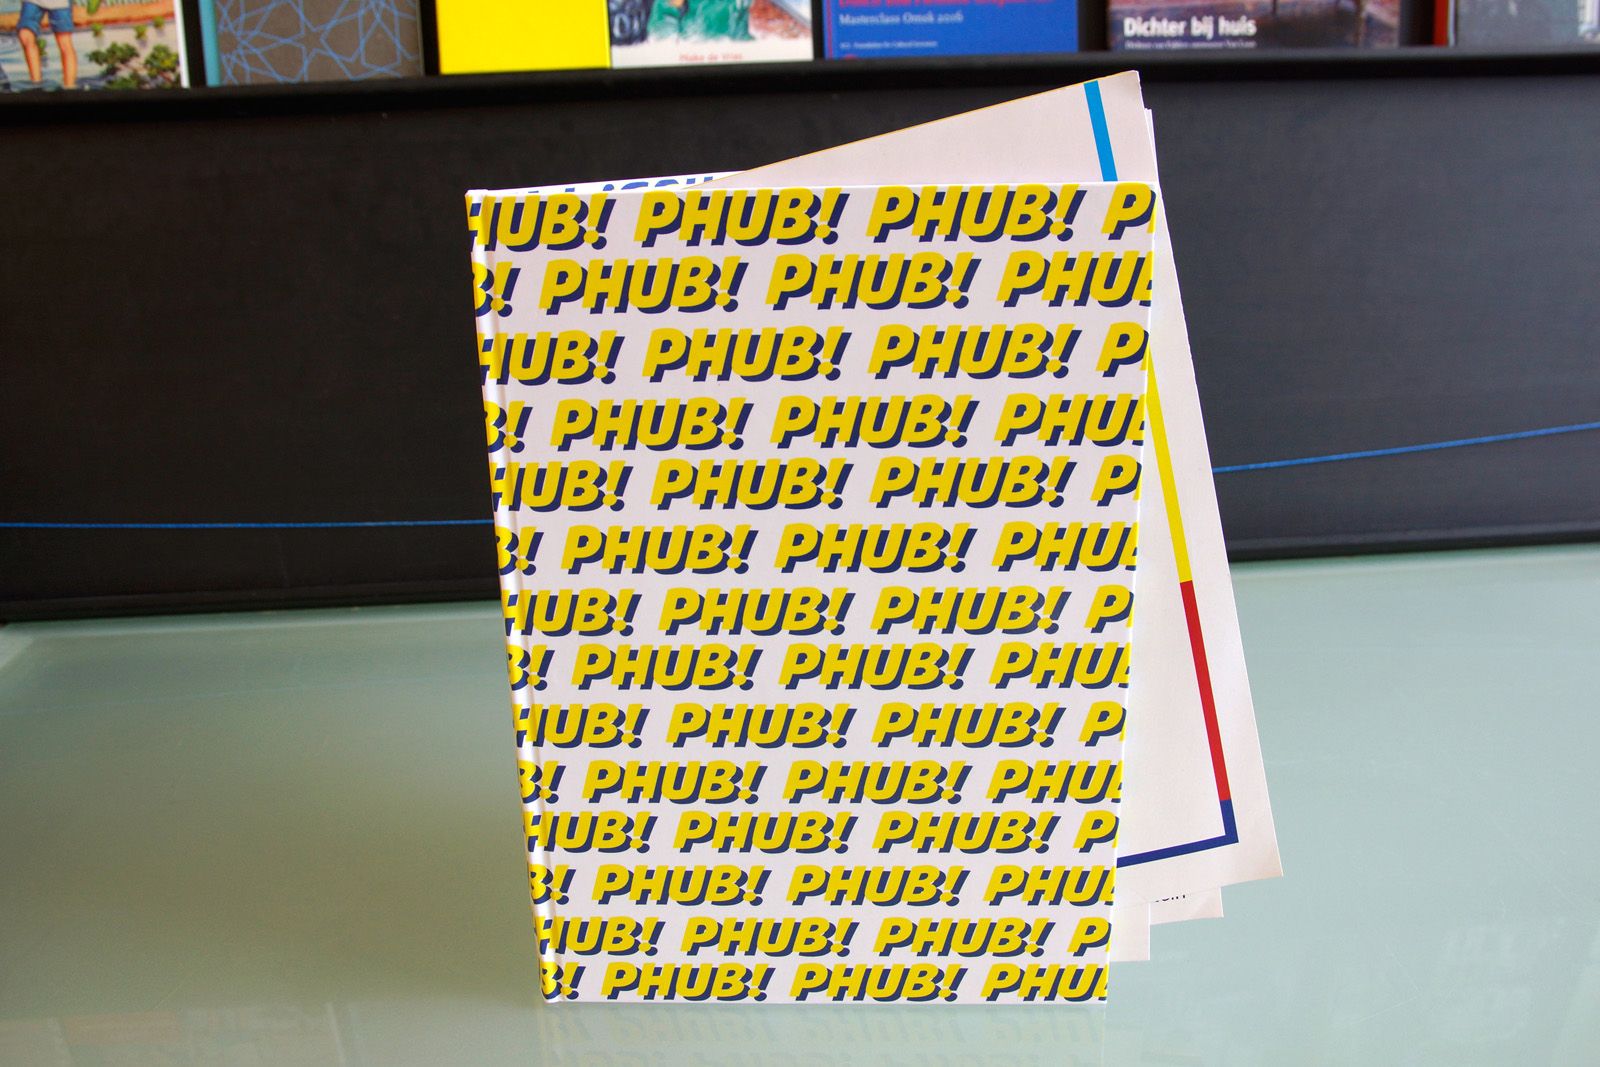 Mieke de Vries
Masterclass Omsk 2016
Dichter bij huis
HUB! PHUB! PHUB! P
B! PHUB! PHUB! PHUB
HUB! PHUB! PHUB! P
B! PHUB! PHUB! PHUB
HUB! PHUB! PHUB! P
B! PHUB! PHUB! PHUB
HUB! PHUB! PHUB! P
B! PHUB! PHUB! PHUB
HUB! PHUB! PHUB! P
B! PHUB! PHUB! PHUB
HUB! PHUB! PHUB! P
B! PHUB! PHUB! PHUB
HUB! PHUB! PHUB! P
B! PHUB! PHUB! PHUB